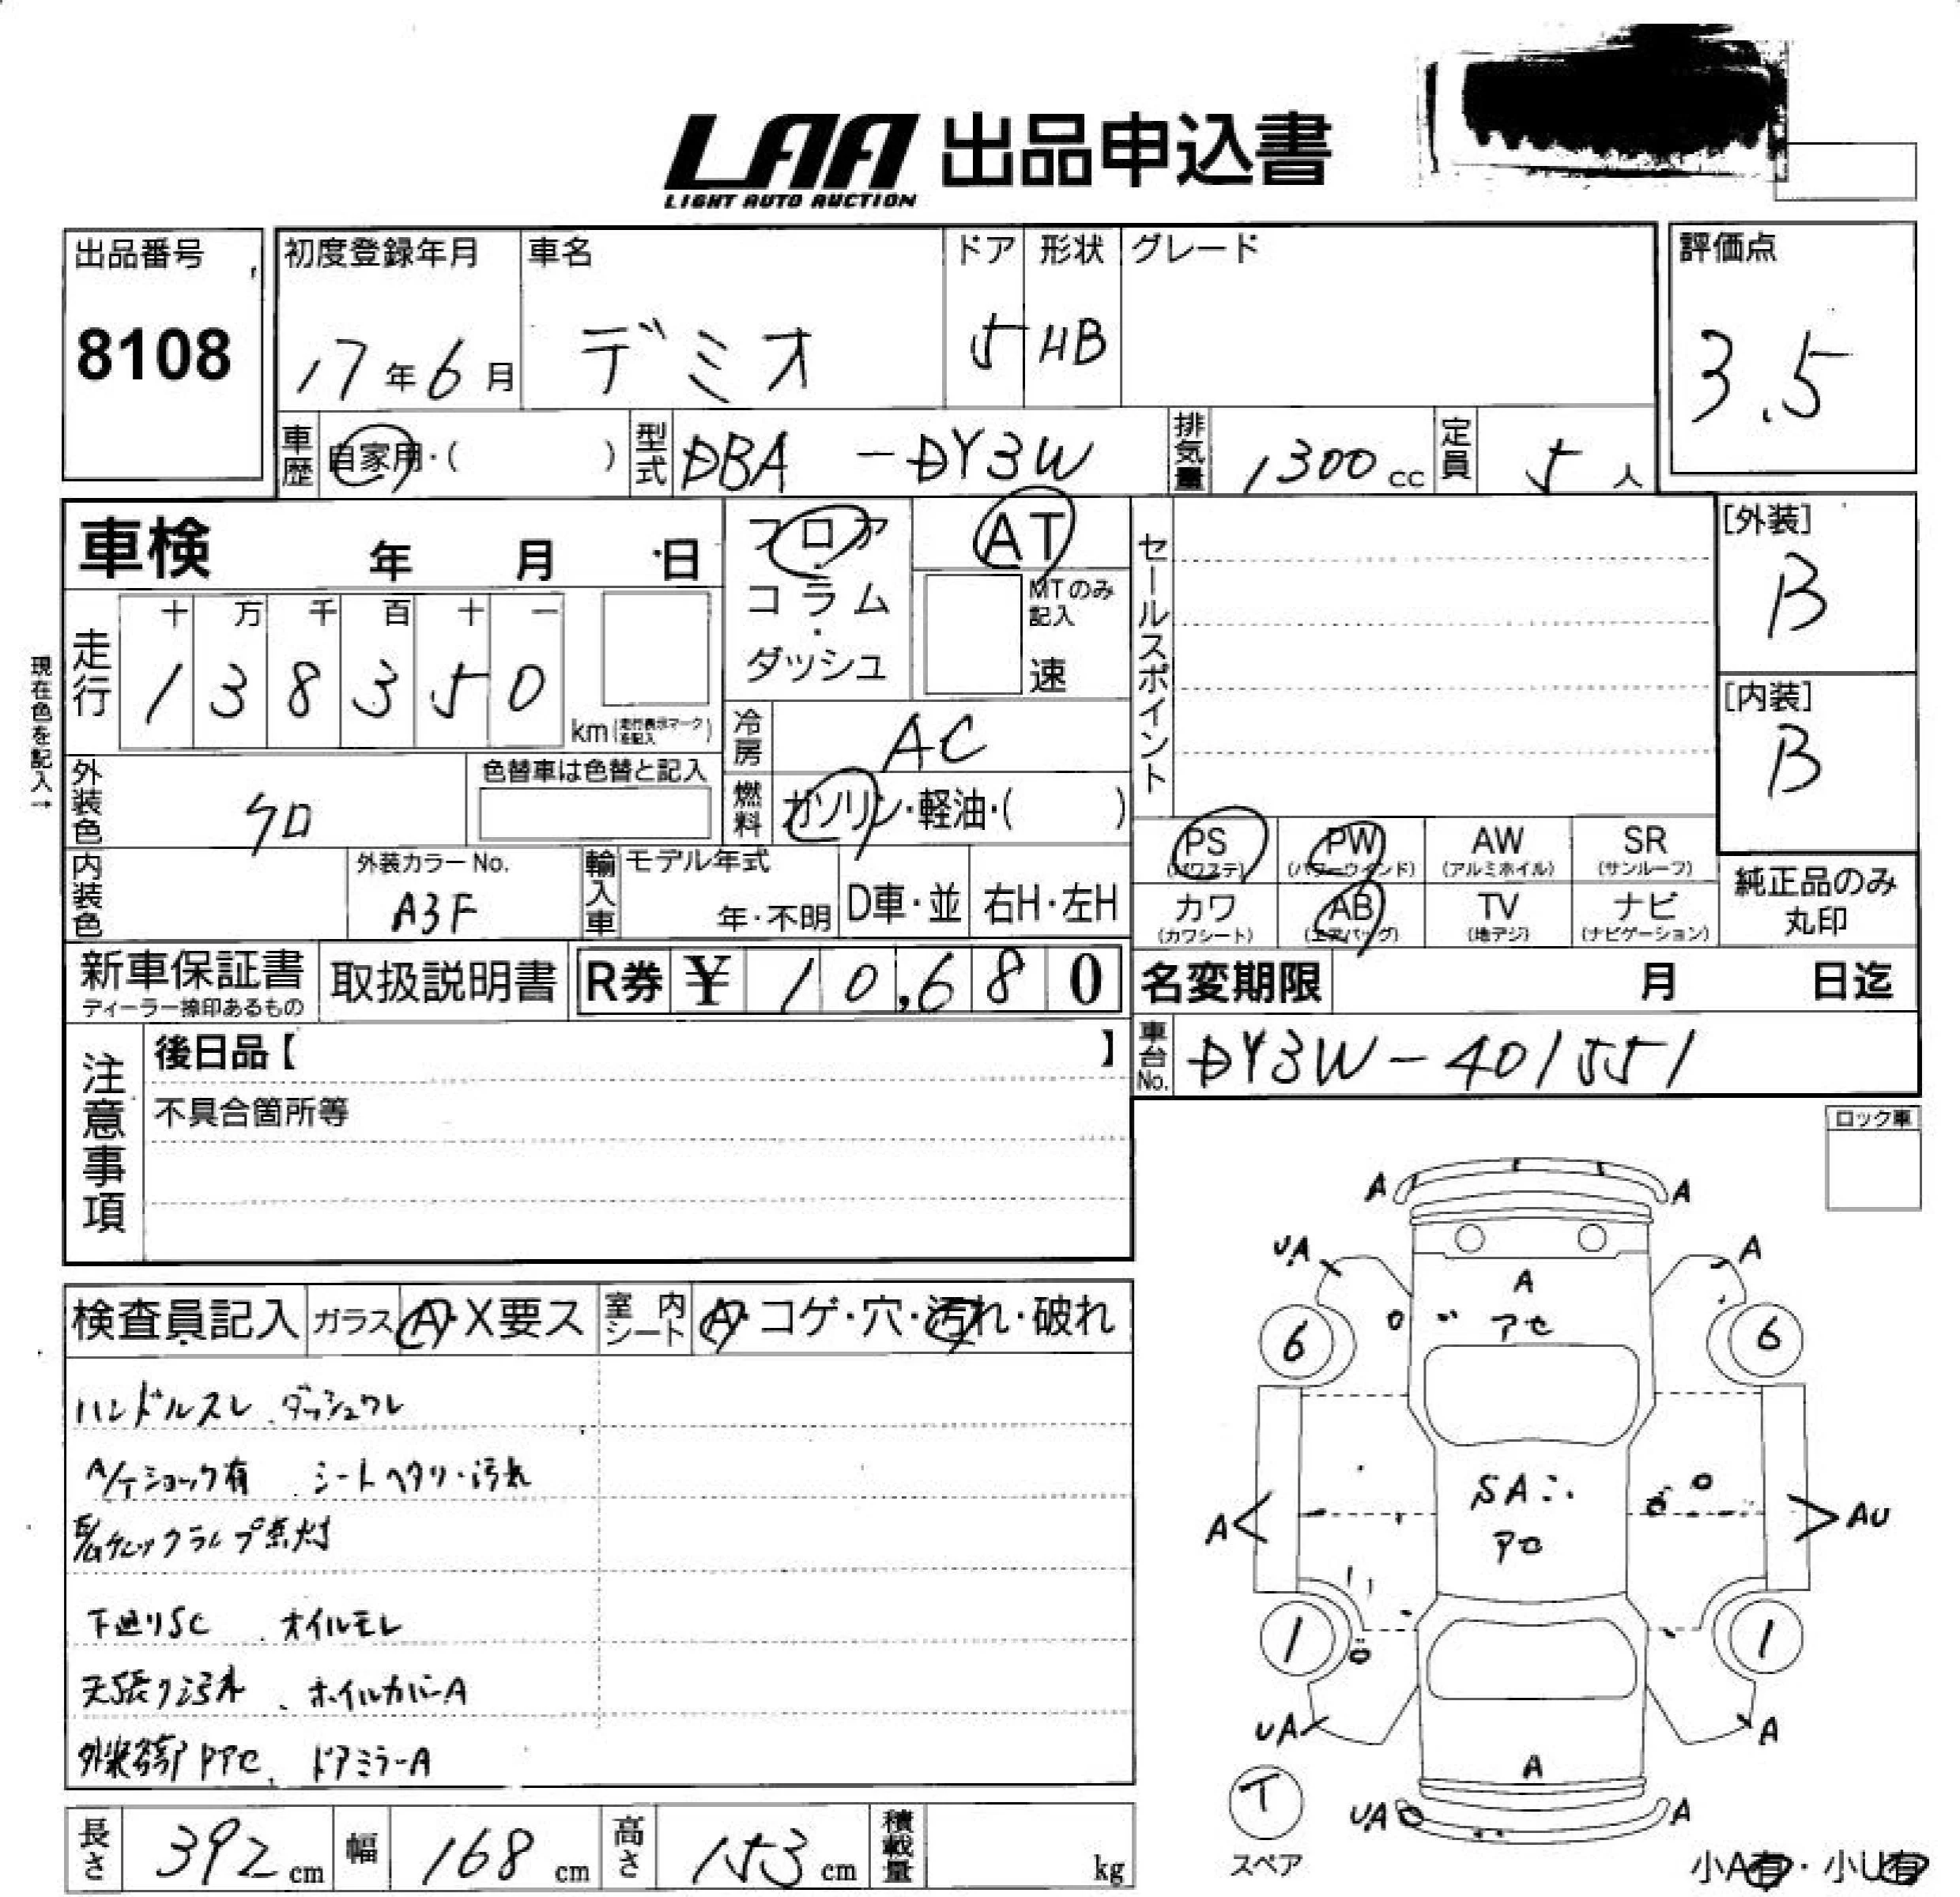 LAA 出品申込書
LIGHT AUTO AUCTION
出品番号
8108
初度登録年月
17年6月
車名
デミオ
ドア
5
形状
HB
グレード
評価点
3.5
車歴
自家用・( )
型式
DBA -DY3W
排気量
1300cc
定員
5人
車検 年 月 日
フロア
・
コラム
・
ダッシュ
AT
MTのみ
記入
速
セールスポイント
[外装]
B
[内装]
B
現在色を記入→
走行
十 万 千 百 十 一
1 3 8 3 5 0
km(走行表示マークを記入)
冷房
AC
外装色
クロ
色替車は色替と記入
燃料
ガソリン・軽油・( )
PS
(パワステ)
PW
(パワーウィンド)
AW
(アルミホイル)
SR
(サンルーフ)
カワ
(カワシート)
AB
(エアバッグ)
TV
(地デジ)
ナビ
(ナビゲーション)
純正品のみ
丸印
内装色
外装カラーNo.
A3F
輸入車
モデル年式
年・不明
D車・並
右H・左H
新車保証書
ディーラー捺印あるもの
取扱説明書
R券 ¥ 10,680
名変期限 月 日迄
注意事項
後日品【 】
不具合箇所等
車台No.
DY3W-401551
ロック車
検査員記入
ガラス
A・X要ス
室内シート
A・コゲ・穴・汚れ・破れ
ハンドルスレ、ダッシュワレ
A/Tショック有、シートヘタリ・汚れ
E/Gチェックランプ点灯
下廻りSC、オイルモレ
天張り汚れ、ホイルカバーA
外装各部アセ、ドアミラーA
A A
UA A
A
アセ
6 6
SA
アセ
A AU
1 1
UA A
A
UA A
T
スペア
小A有・小U有
長さ
392cm
幅
168cm
高さ
153cm
積載量
kg